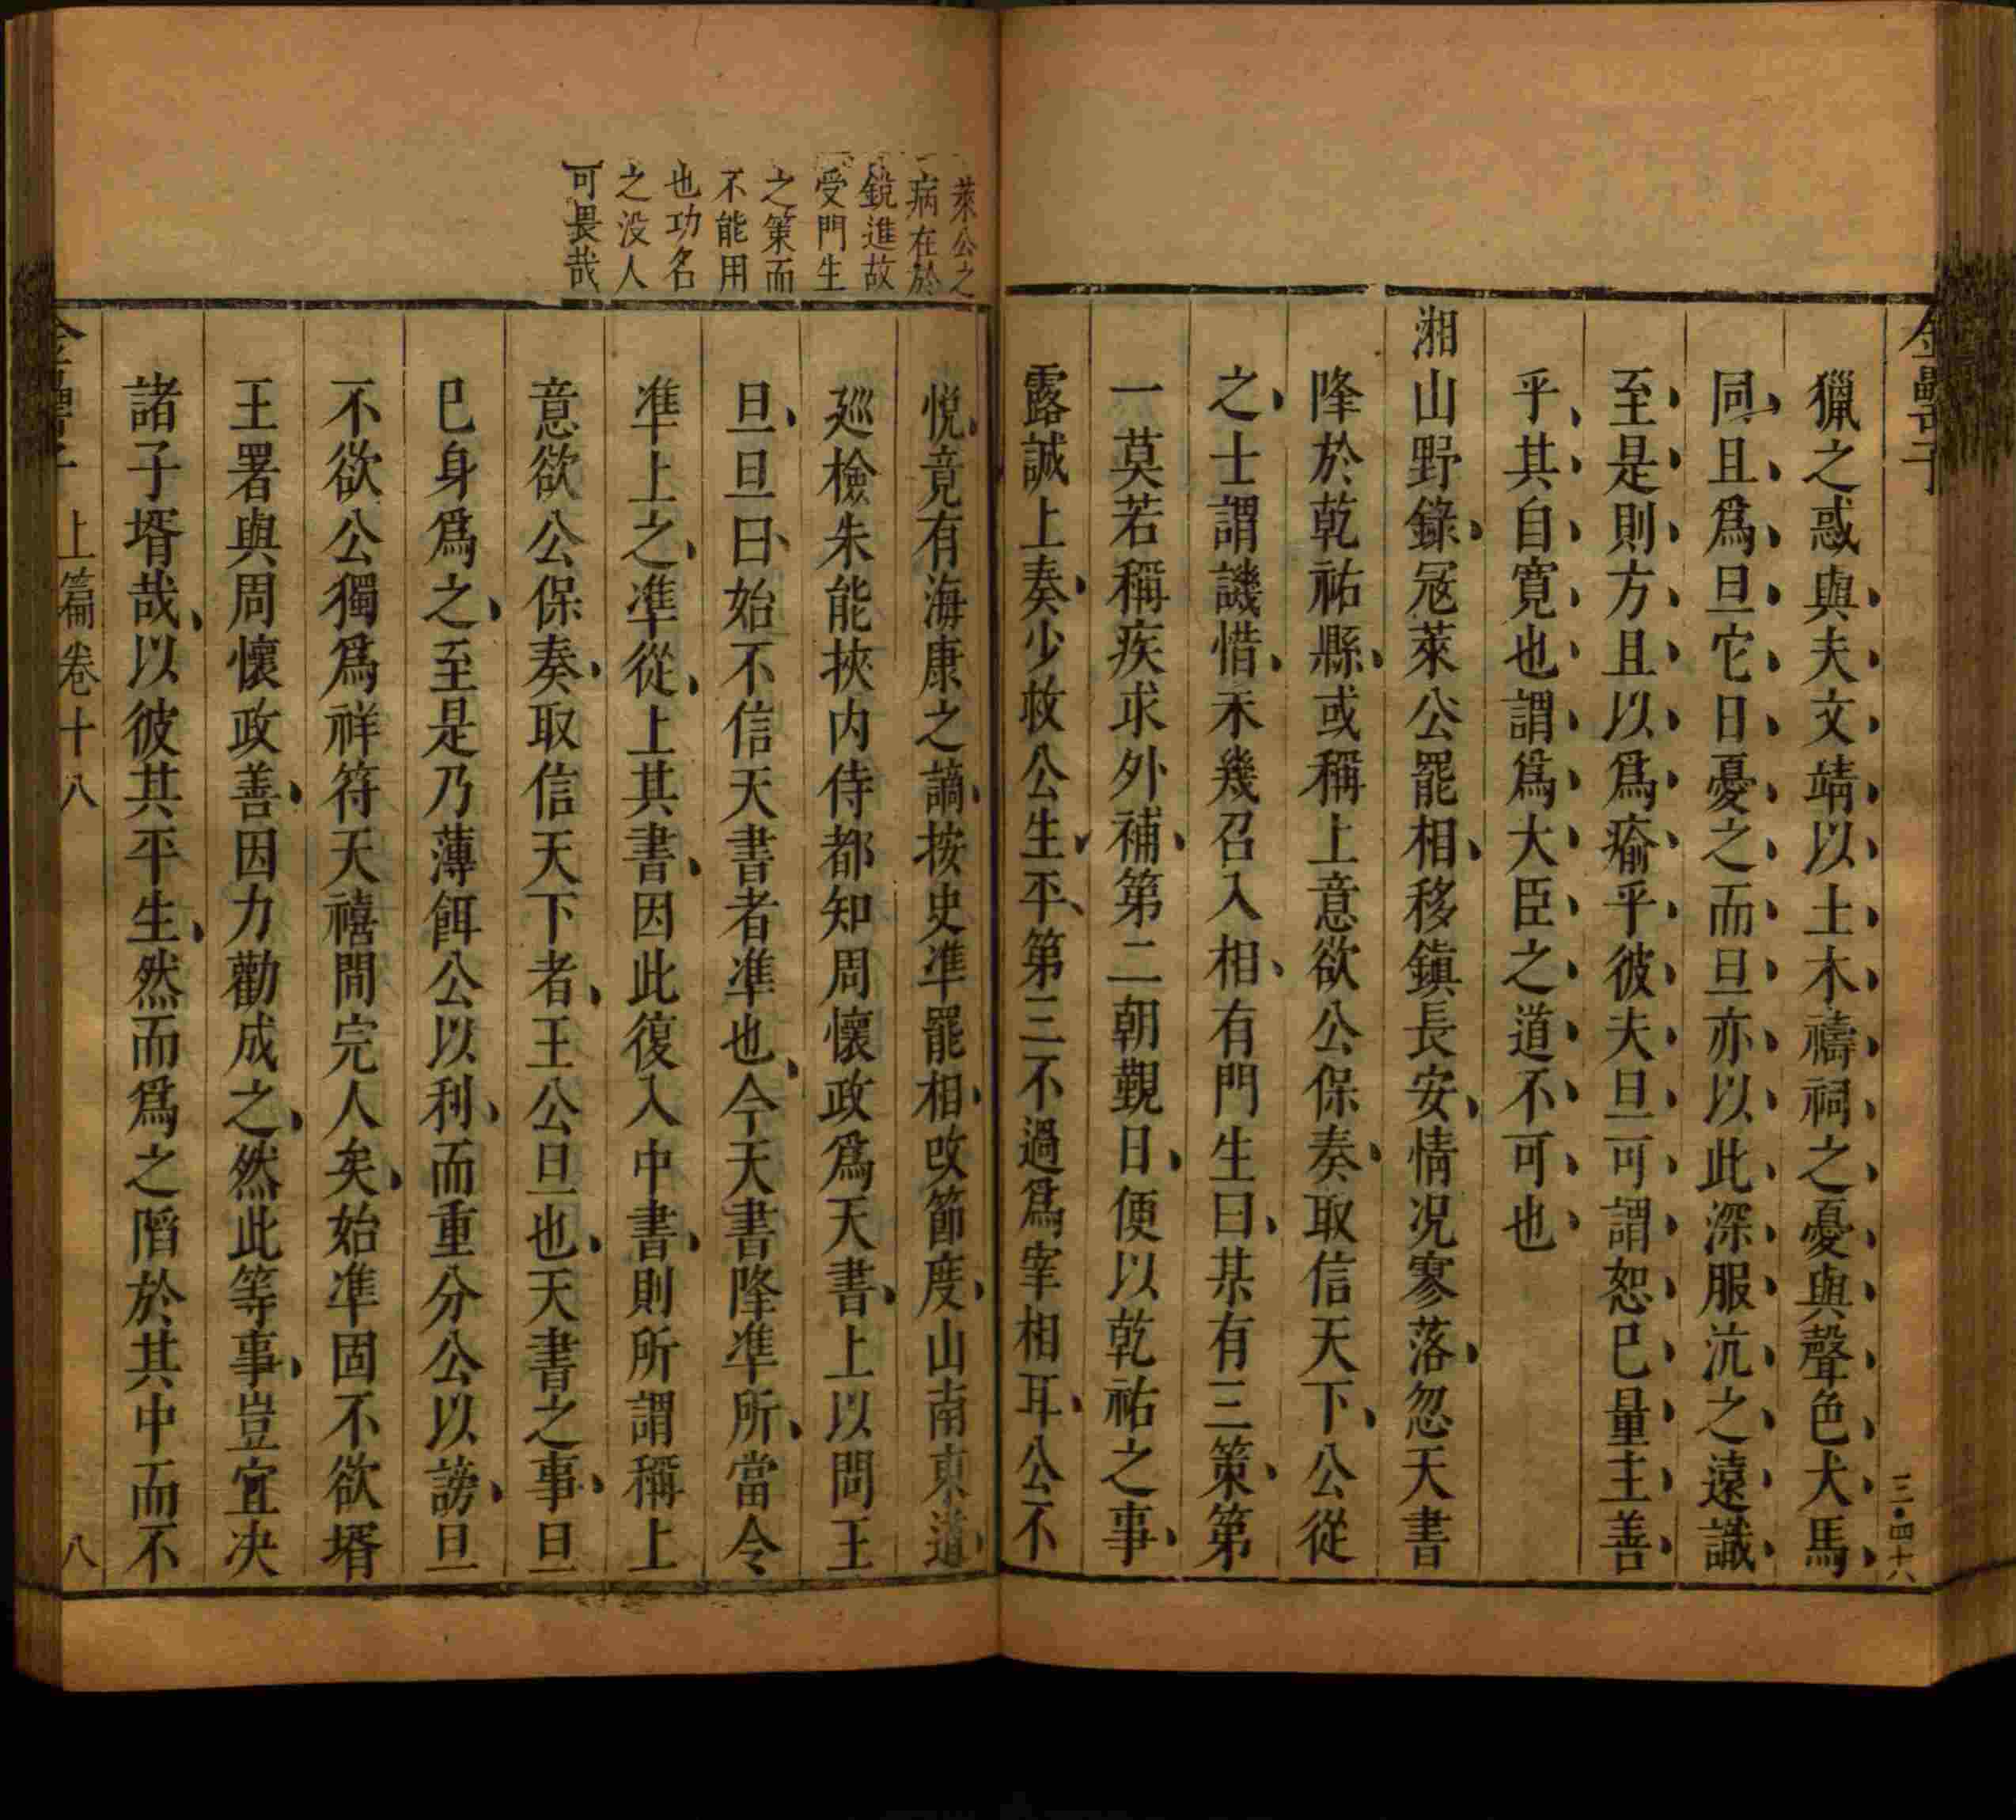 金罍子
三・四十八
獵之惑與夫文靖以土木禱祠之憂與聲色犬馬
同且爲旦它日憂之而旦亦以此深服沆之遠識
至是則方且以爲瘉乎彼夫旦可謂恕巳量主善
乎其自寬也謂爲大臣之道不可也
湘山野錄冦萊公罷相移鎮長安情况寥落忽天書
降於乾祐縣或稱上意欲公保奏取信天下公從
之士謂譏惜未幾召入相有門生曰某有三策第
一莫若稱疾求外補第二朝覲日便以乾祐之事
露誠上奏少救公生平第三不過爲宰相耳公不
萊公之
病在於
銳進故
受門生
之策而
不能用
也功名
之没人
可畏哉
悅竟有海康之謫按史凖罷相改節度山南東道
廵檢朱能挾内侍都知周懷政爲天書上以問王
旦旦曰始不信天書者凖也今天書降凖所當令
凖上之凖從上其書因此復入中書則所謂稱上
意欲公保奏取信天下者王公旦也天書之事旦
巳身爲之至是乃薄餌公以利而重分公以謗旦
不欲公獨爲祥符天禧間完人矣始凖固不欲壻
王署與周懷政善因力勸成之然此等事豈宜决
諸子壻哉以彼其平生然而爲之陷於其中而不
金罍子 上篇卷十八 八